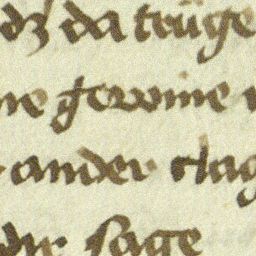 dz da truge
ne gewinne
ander clag
dir sage